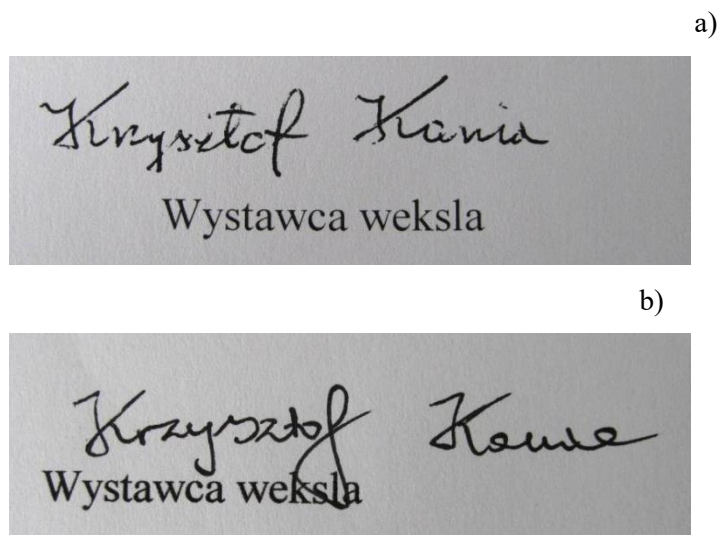 a)
Krzysztof Kania
Wystawca weksla
b)
Krzysztof Kania
Wystawca weksla